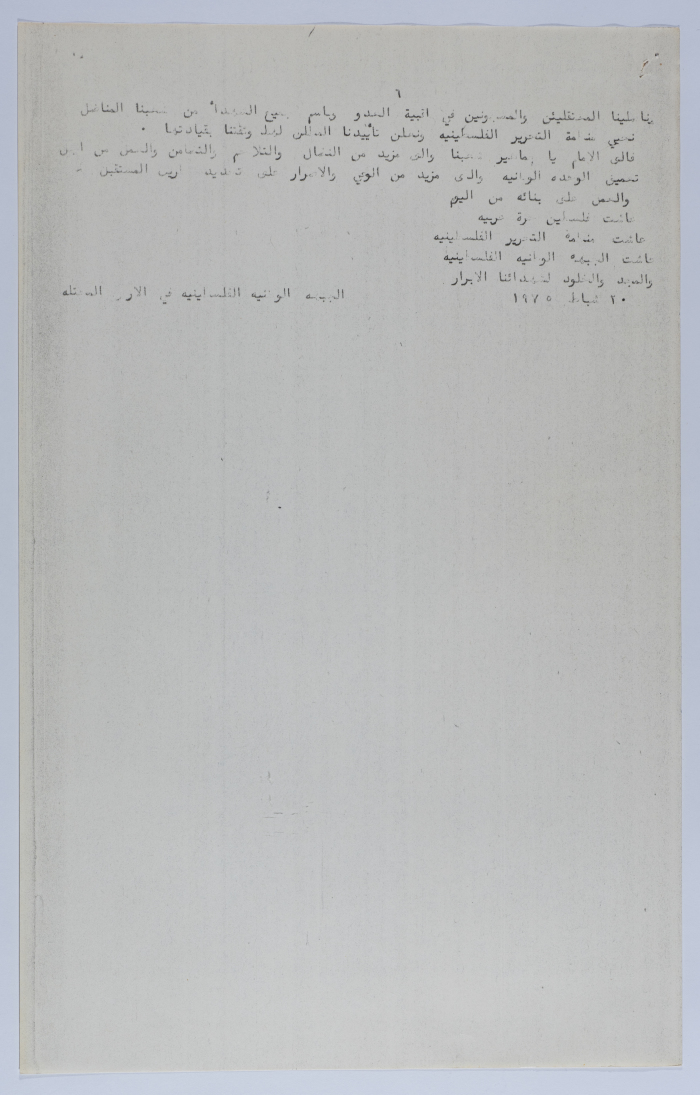 ٦
مناضلينا المعتقلين والمسجونين في اقبية العدو وباسم جميع الشهدأ من شعبنا المناضل
نحيي منظمة التحرير الفلسطينيه ونعلن تأييدنا المطلق لها وثقتنا بقيادتها .
فالى الامام يا جماهير شعبنا والى مزيد من النضال والتلاحم والتضامن والعمل من اجل
تعميق الوحده الوطنيه والى مزيد من الوعي والاصرار على تحديد طريق المستقبل
والعمل على بنائه من اليوم
عاشت فلسطين حرة عربيه
عاشت منظمة التحرير الفلسطينيه
عاشت الجبهه الوطنيه الفلسطينيه
والمجد والخلود لشهدائنا الابرار
٢٠ شباط ١٩٧٥ الجبهه الوطنيه الفلسطينيه في الارض المحتله